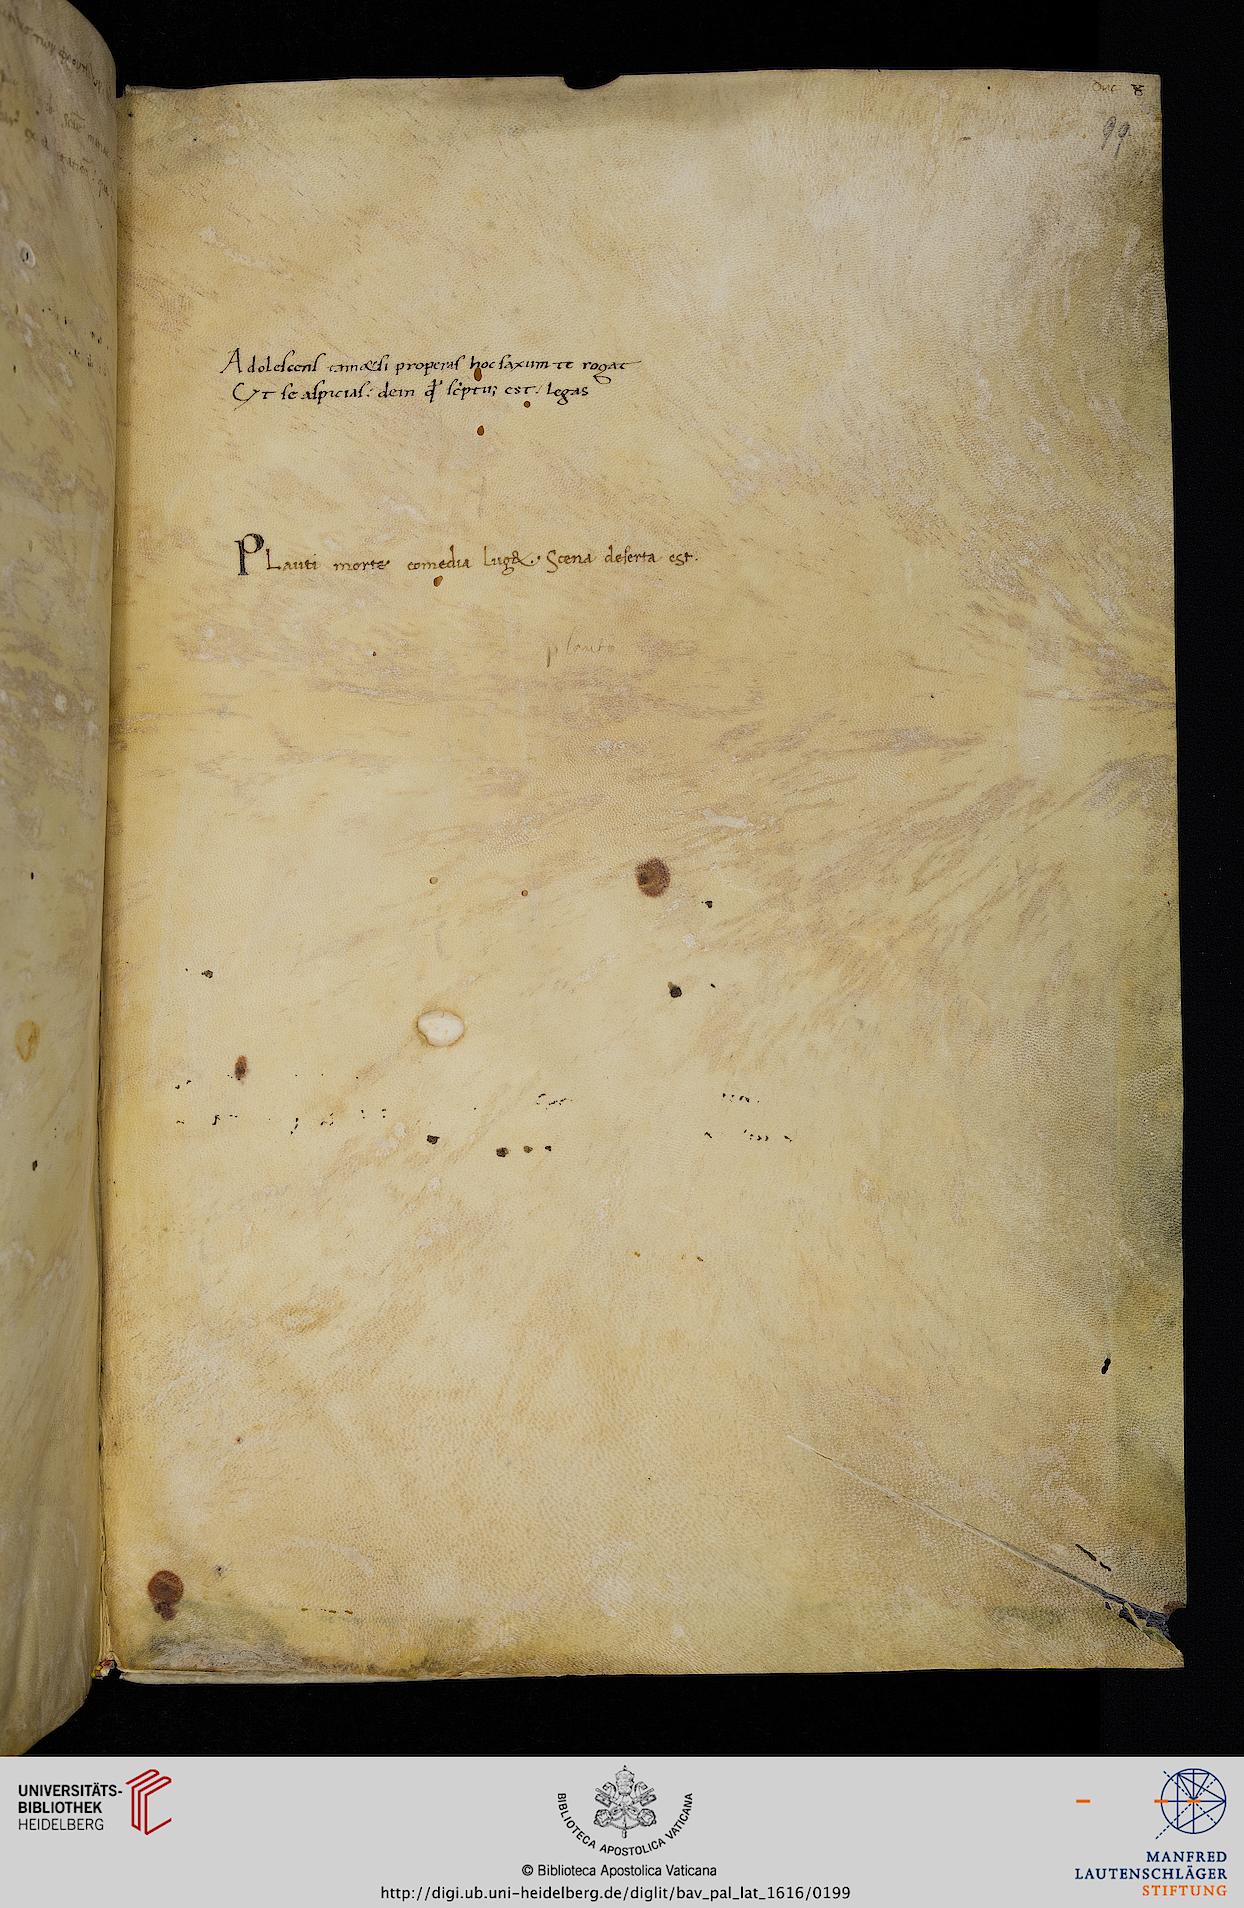 99
Adolescens tam&si properas hoc saxum te rogat
Ut se aspicias: dein qđ scͥptu; est. legas
Plauti morte comedia lug&. Scena deserta est.
plauto
UNIVERSITÄTS-
BIBLIOTHEK
HEIDELBERG
BIBLIOTECA APOSTOLICA VATICANA
© Biblioteca Apostolica Vaticana
http://digi.ub.uni-heidelberg.de/diglit/bav_pal_lat_1616/0199
MANFRED
LAUTENSCHLÄGER
STIFTUNG